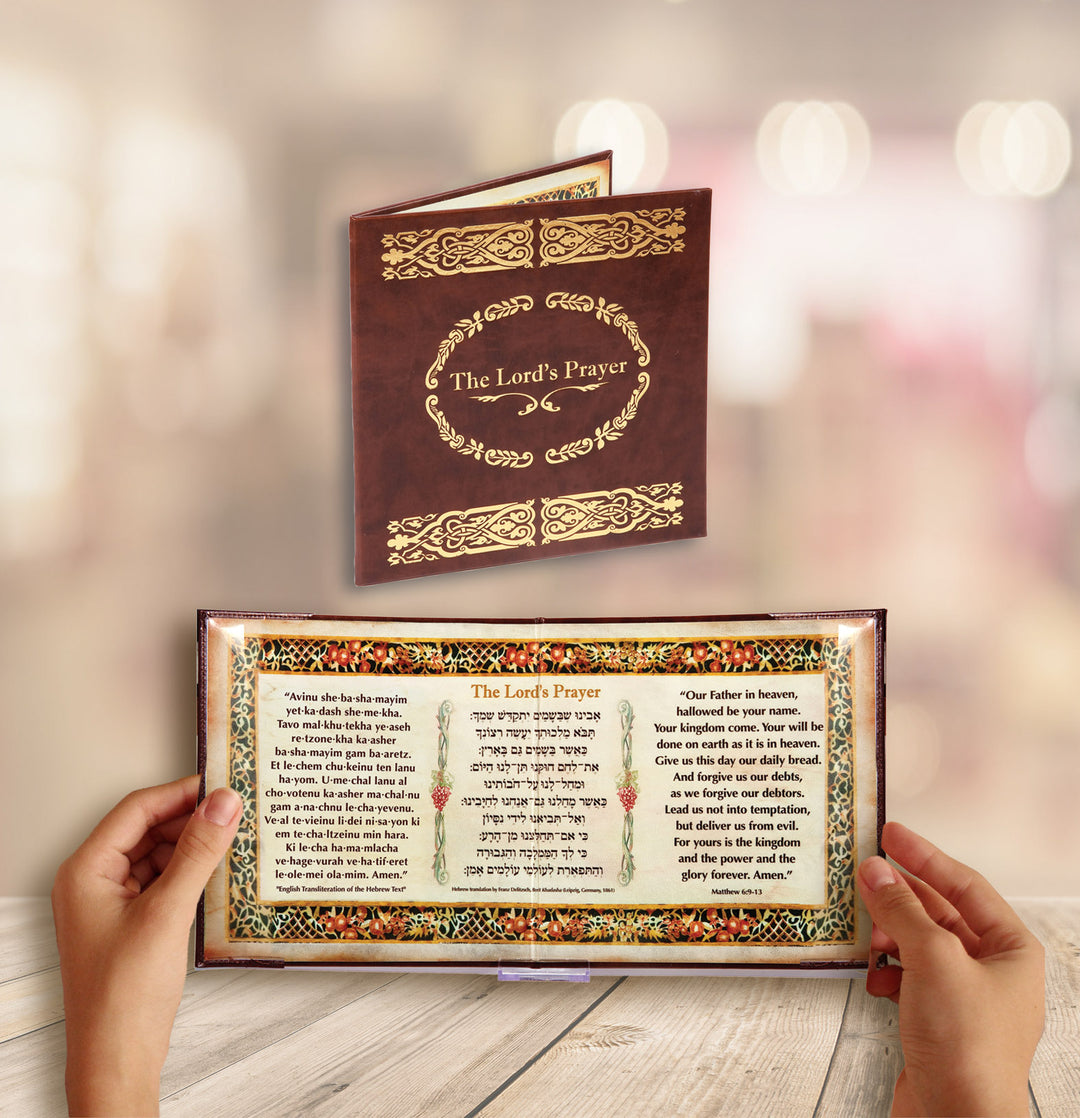 The Lord's Prayer
"Avinu she·ba·sha·mayim
yet·ka·dash she·me·kha.
Tavo mal·khu·tekha ye·aseh
re·tzone·kha ka·asher
ba·sha·mayim gam ba·aretz.
Et le·chem chu·keinu ten lanu
ha·yom. U·me·chal lanu al
cho·votenu ka·asher ma·chal·nu
gam a·na·chnu le·cha·yevenu.
Ve·al te·vieinu li·dei ni·sa·yon ki
em te·cha·ltzeinu min hara.
Ki le·cha ha·ma·mlacha
ve·hage·vurah ve·ha·tif·eret
le·ole·mei ola·mim. Amen."
"English Transliteration of the Hebrew Text"
The Lord's Prayer
אָבִינוּ שֶׁבַּשָּׁמַיִם יִתְקַדַּשׁ שְׁמֶךָ:
תָּבֹא מַלְכוּתְךָ יֵעָשֶׂה רְצוֹנְךָ
כַּאֲשֶׁר בַּשָּׁמַיִם גַּם בָּאָרֶץ:
אֶת־לֶחֶם חֻוקֵּנוּ תֵּן־לָנוּ הַיּוֹם:
וּמְחַל־לָנוּ עַל־חֹבוֹתֵינוּ
כַּאֲשֶׁר מָחַלְנוּ גַּם־אֲנַחְנוּ לְחַיָּבֵינוּ:
וְאַל־תְּבִיאֵנוּ לִידֵי נִסָּיוֹן
כִּי אִם־תְּחַלְּצֵנוּ מִן־הָרָע:
כִּי לְךָ הַמַּמְלָכָה וְהַגְּבוּרָה
וְהַתִּפְאֶרֶת לְעוֹלְמֵי עוֹלָמִים אָמֵן:
Hebrew translation by Franz Delitzsch, Brit Khadasha (Leipzig, Germany, 1861)
"Our Father in heaven,
hallowed be your name.
Your kingdom come. Your will be
done on earth as it is in heaven.
Give us this day our daily bread.
And forgive us our debts,
as we forgive our debtors.
Lead us not into temptation,
but deliver us from evil.
For yours is the kingdom
and the power and the
glory forever. Amen."
Matthew 6:9-13